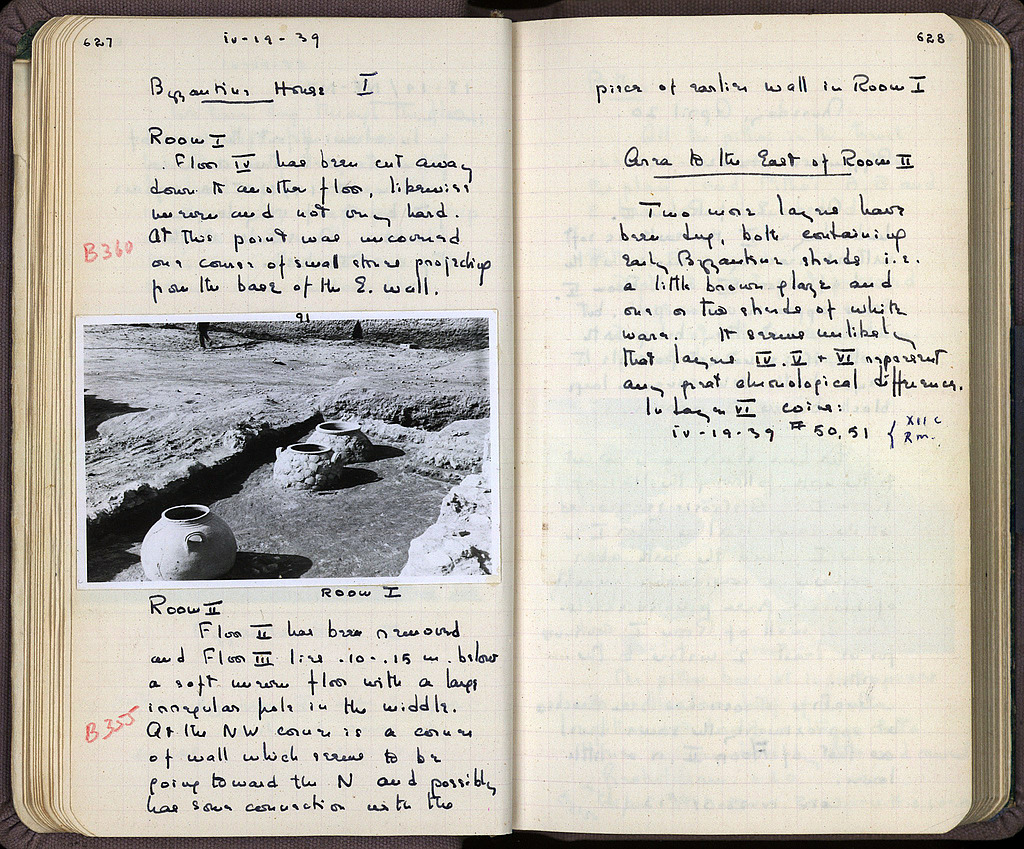 627
iv-19-39
Byzantine House I
Room I
Floor IV has been cut away
down to another floor, likewise
uneven and not very hard.
At this point was uncovered
B360
one course of small stones projecting
from the base of the E. wall.
91
Room I
Room II
Floor II has been removed
and Floor III lies .10-.15 m. below
a soft uneven floor with a large
irregular hole in the middle.
B355
At the NW corner is a corner
of wall which seems to be
going toward the N and possibly
has some connection with the
628
piece of earlier wall in Room I
Area to the East of Room II
Two more layers have
been dug, both containing
early Byzantine sherds i.e.
a little brown glaze and
one or two sherds of white
ware. It seems unlikely
that layers IV, V + VI represent
any great chronological difference.
In Layer VI coins:
iv-19-39 # 50, 51 { XII C
Rm.